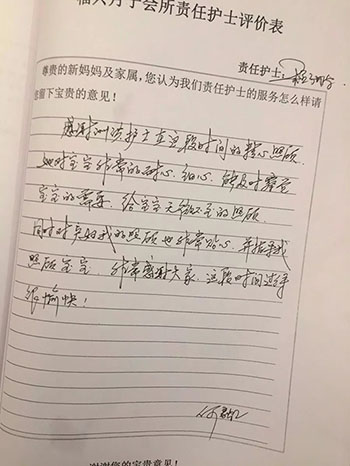 福人月子会所责任护士评价表
责任护士：
尊贵的新妈妈及家属，您认为我们责任护士的服务怎么样请
您留下宝贵的意见！
感谢 护士在这段时间的精心照顾，
她对宝宝非常的耐心、细心，能及时察觉
宝宝的需要，给宝宝无微不至的照顾，
同时对 妈我的照顾也非常贴心，并指导我
照顾宝宝，非常感谢大家，这段时间过得
很愉快！
谢谢您的宝贵意见！